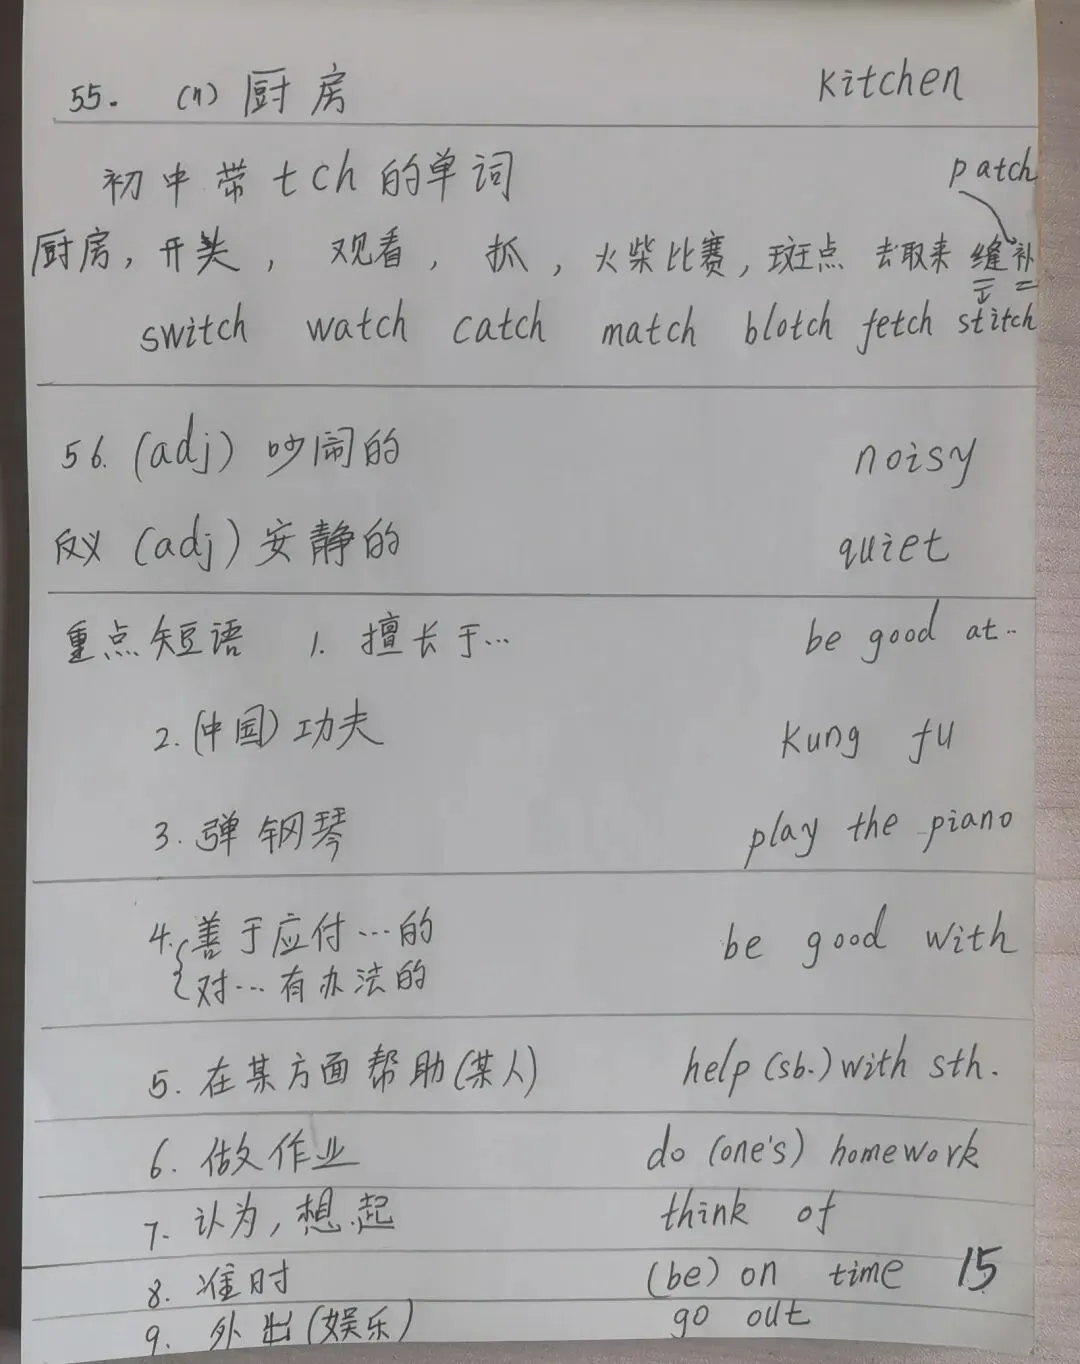 55. (n) 厨房 kitchen
初中带tch的单词 patch
厨房, 开关, 观看, 抓, 火柴比赛, 斑点 去取来 缝补
switch watch catch match blotch fetch stitch
56. (adj) 吵闹的 noisy
反义 (adj) 安静的 quiet
重点短语 1. 擅长于… be good at..
2. (中国) 功夫 kung fu
3. 弹钢琴 play the piano
4. 善于应付…的 be good with
对…有办法的
5. 在某方面帮助(某人) help (sb.) with sth.
6. 做作业 do (one's) homework
7. 认为, 想起 think of
8. 准时 (be) on time 15
9. 外出(娱乐) go out